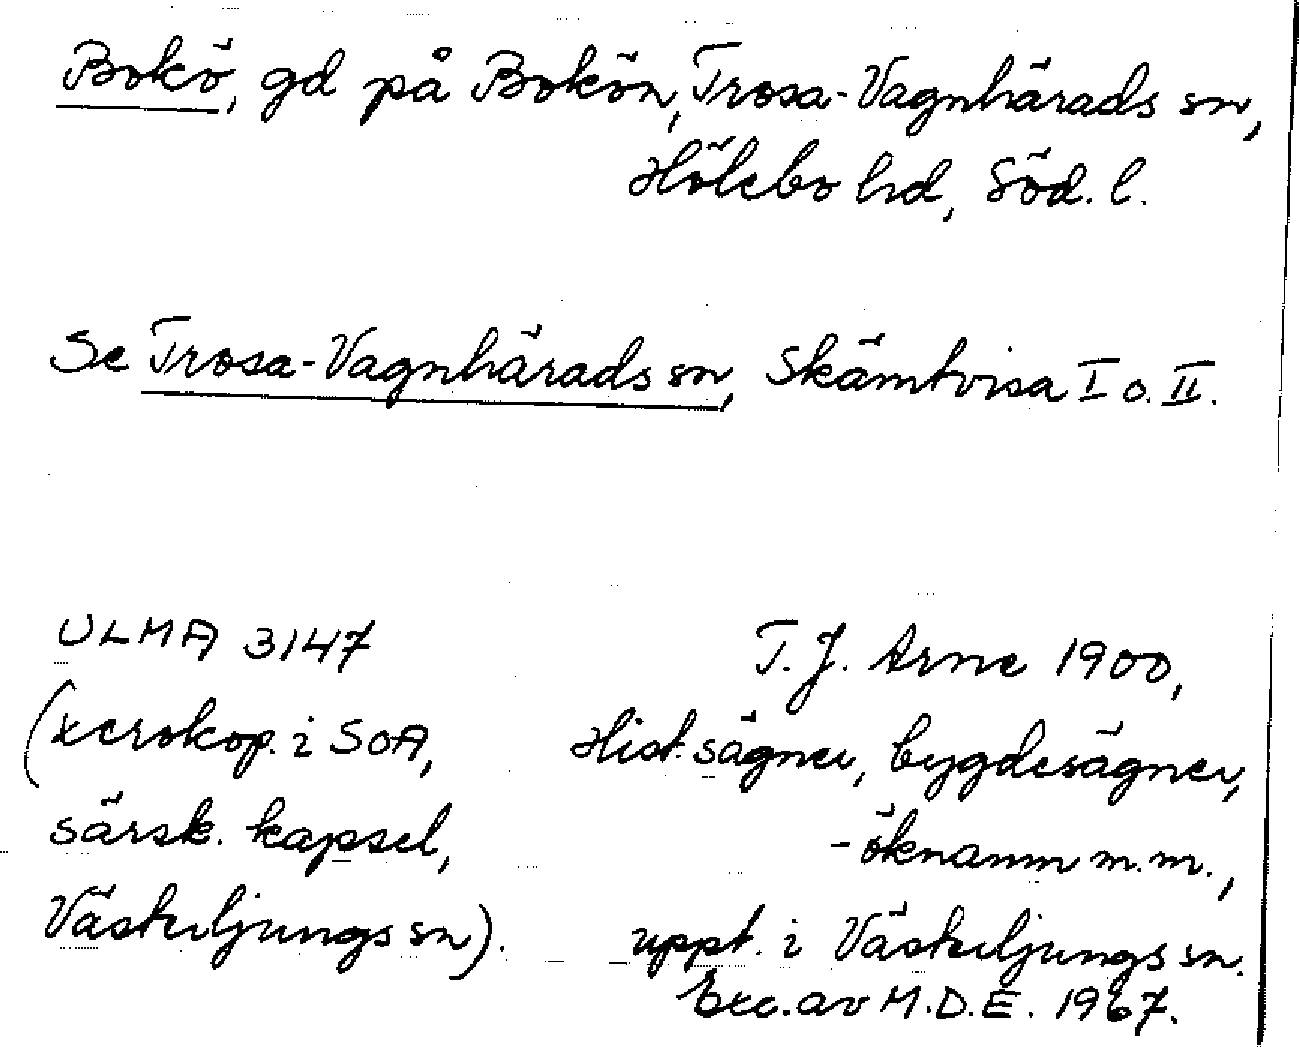 Bokö, gd på Bokön, Trosa-Vagnhärads sn,
Hölebo hd, Söd. l.
Se Trosa-Vagnhärads sn, Skämtvisa I o. II.
ULMA 3147
(xerokop. i SOA,
särsk. kapsel,
Västerljungs sn).
T. J. Arne 1900,
Hist. sägner, bygdesägner,
-öknamn m.m.,
uppt. i Västerljungs sn.
Exc. av M.D.E. 1967.